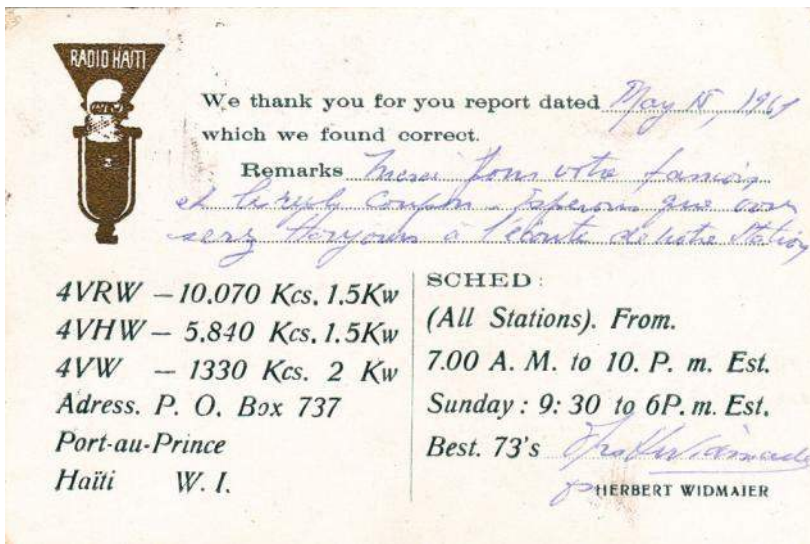 RADIO HAITI
We thank you for you report dated May 15, 1961
which we found correct.
Remarks Merci pour votre
et le reply Coupon. Esperons que vous
serez toujours à l'écoute de notre Station
4VRW – 10.070 Kcs. 1.5Kw
4VHW – 5.840 Kcs. 1.5Kw
4VW – 1330 Kcs. 2 Kw
Adress. P. O. Box 737
Port-au-Prince
Haïti W. I.
SCHED :
(All Stations). From.
7.00 A. M. to 10. P. m. Est.
Sunday : 9: 30 to 6P. m. Est.
Best. 73's
HERBERT WIDMAIER